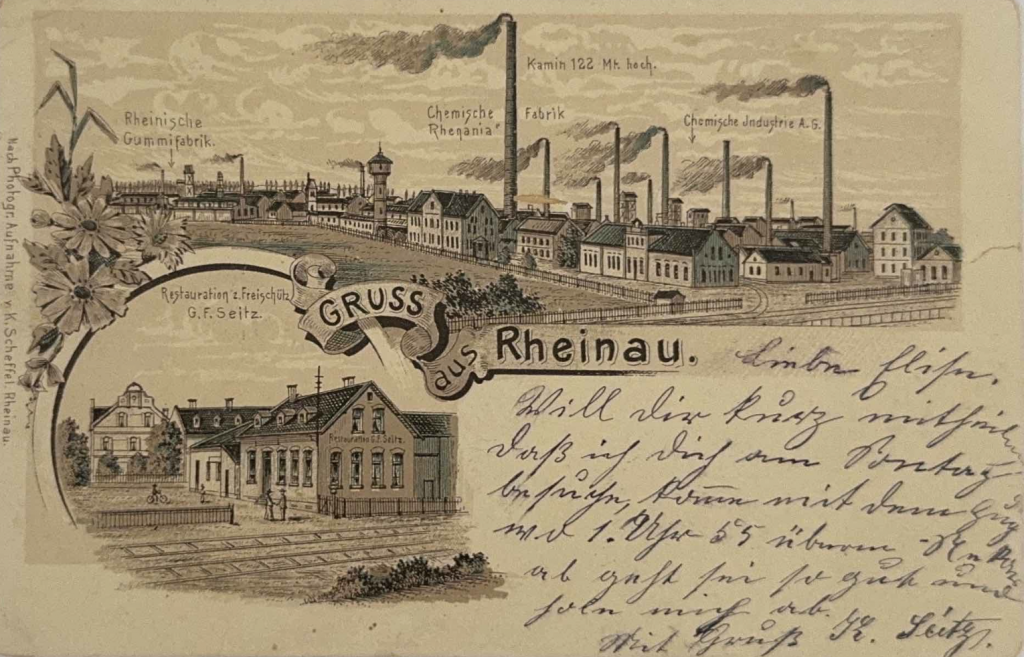 Kamin 122 Mt. hoch.
Rheinische
Gummifabrik.
Chemische Fabrik
"Rhenania"
Chemische Industrie A.G.
Restauration z. Freischütz
G. F. Seitz.
GRUSS
aus Rheinau.
Restauration G.F. Seitz.
Nach Photogr. Aufnahme v. K. Scheffel. Rheinau.
Liebe Elise.
Will dir kurz mitheilen
daß ich dich am Sontag
besuche, komme mit dem Zug
wo 1. Uhr 55 überm
ab geht sei so gut und
hole mich ab.
Mit Gruß K. Seitz.